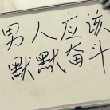 男人应该
默默奋斗